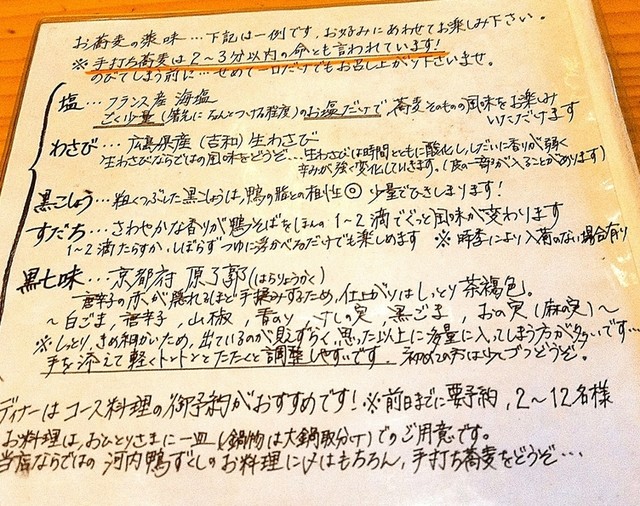 お蕎麦の薬味…下記は一例です。お好みにあわせてお楽しみ下さい。
※手打ち蕎麦は2～3分以内の命とも言われています!
のびてしまう前に…せめて一口だけでもお召し上がり下さいませ。
塩…フランス産 海塩
ごく少量(箸先にちょんとつける程度)のお塩だけで 蕎麦そのものの風味をお楽しみ
いただけます
わさび…広島県産(吉和)生わさび
生わさびならではの風味をどうぞ…生わさびは時間とともに酸化し、しだいに香りが弱く
辛みが強く変化していきます。(皮の一部が入ることがあります)
黒こしょう…粗くつぶした黒こしょうは、鴨の脂との相性◎ 少量でひきしまります!
すだち…さわやかな香りが鴨そばをほんの1～2滴でぐっと風味が変わります
1～2滴たらすか、しばらずつゆに浮かべるだけでも楽しめます ※時季により入荷のない場合有り
黒七味…京都府 原了郭(はらりょうかく)
唐辛子の赤が隠れるほど手揉みするため、仕上がりはしっとり茶褐色。
～白ごま、唐辛子、山椒、青のり、けしの実、黒ごま、おの実(麻の実)～
※しっとり、きめ細かいため、出ているのが見えずらく、思った以上に多量に入ってしまう方が多いです…
手を添えて軽くトントンとたたくと調整しやすいです。初めての方は少しづつどうぞ。
ディナーはコース料理の御予約がおすすめです!※前日までに要予約、2～12名様
お料理は、おひとりさまに一皿(鍋物は大鍋取分け)でのご用意です。
当店ならではの河内鴨ずくしのお料理に〆はもちろん、手打ち蕎麦をどうぞ…